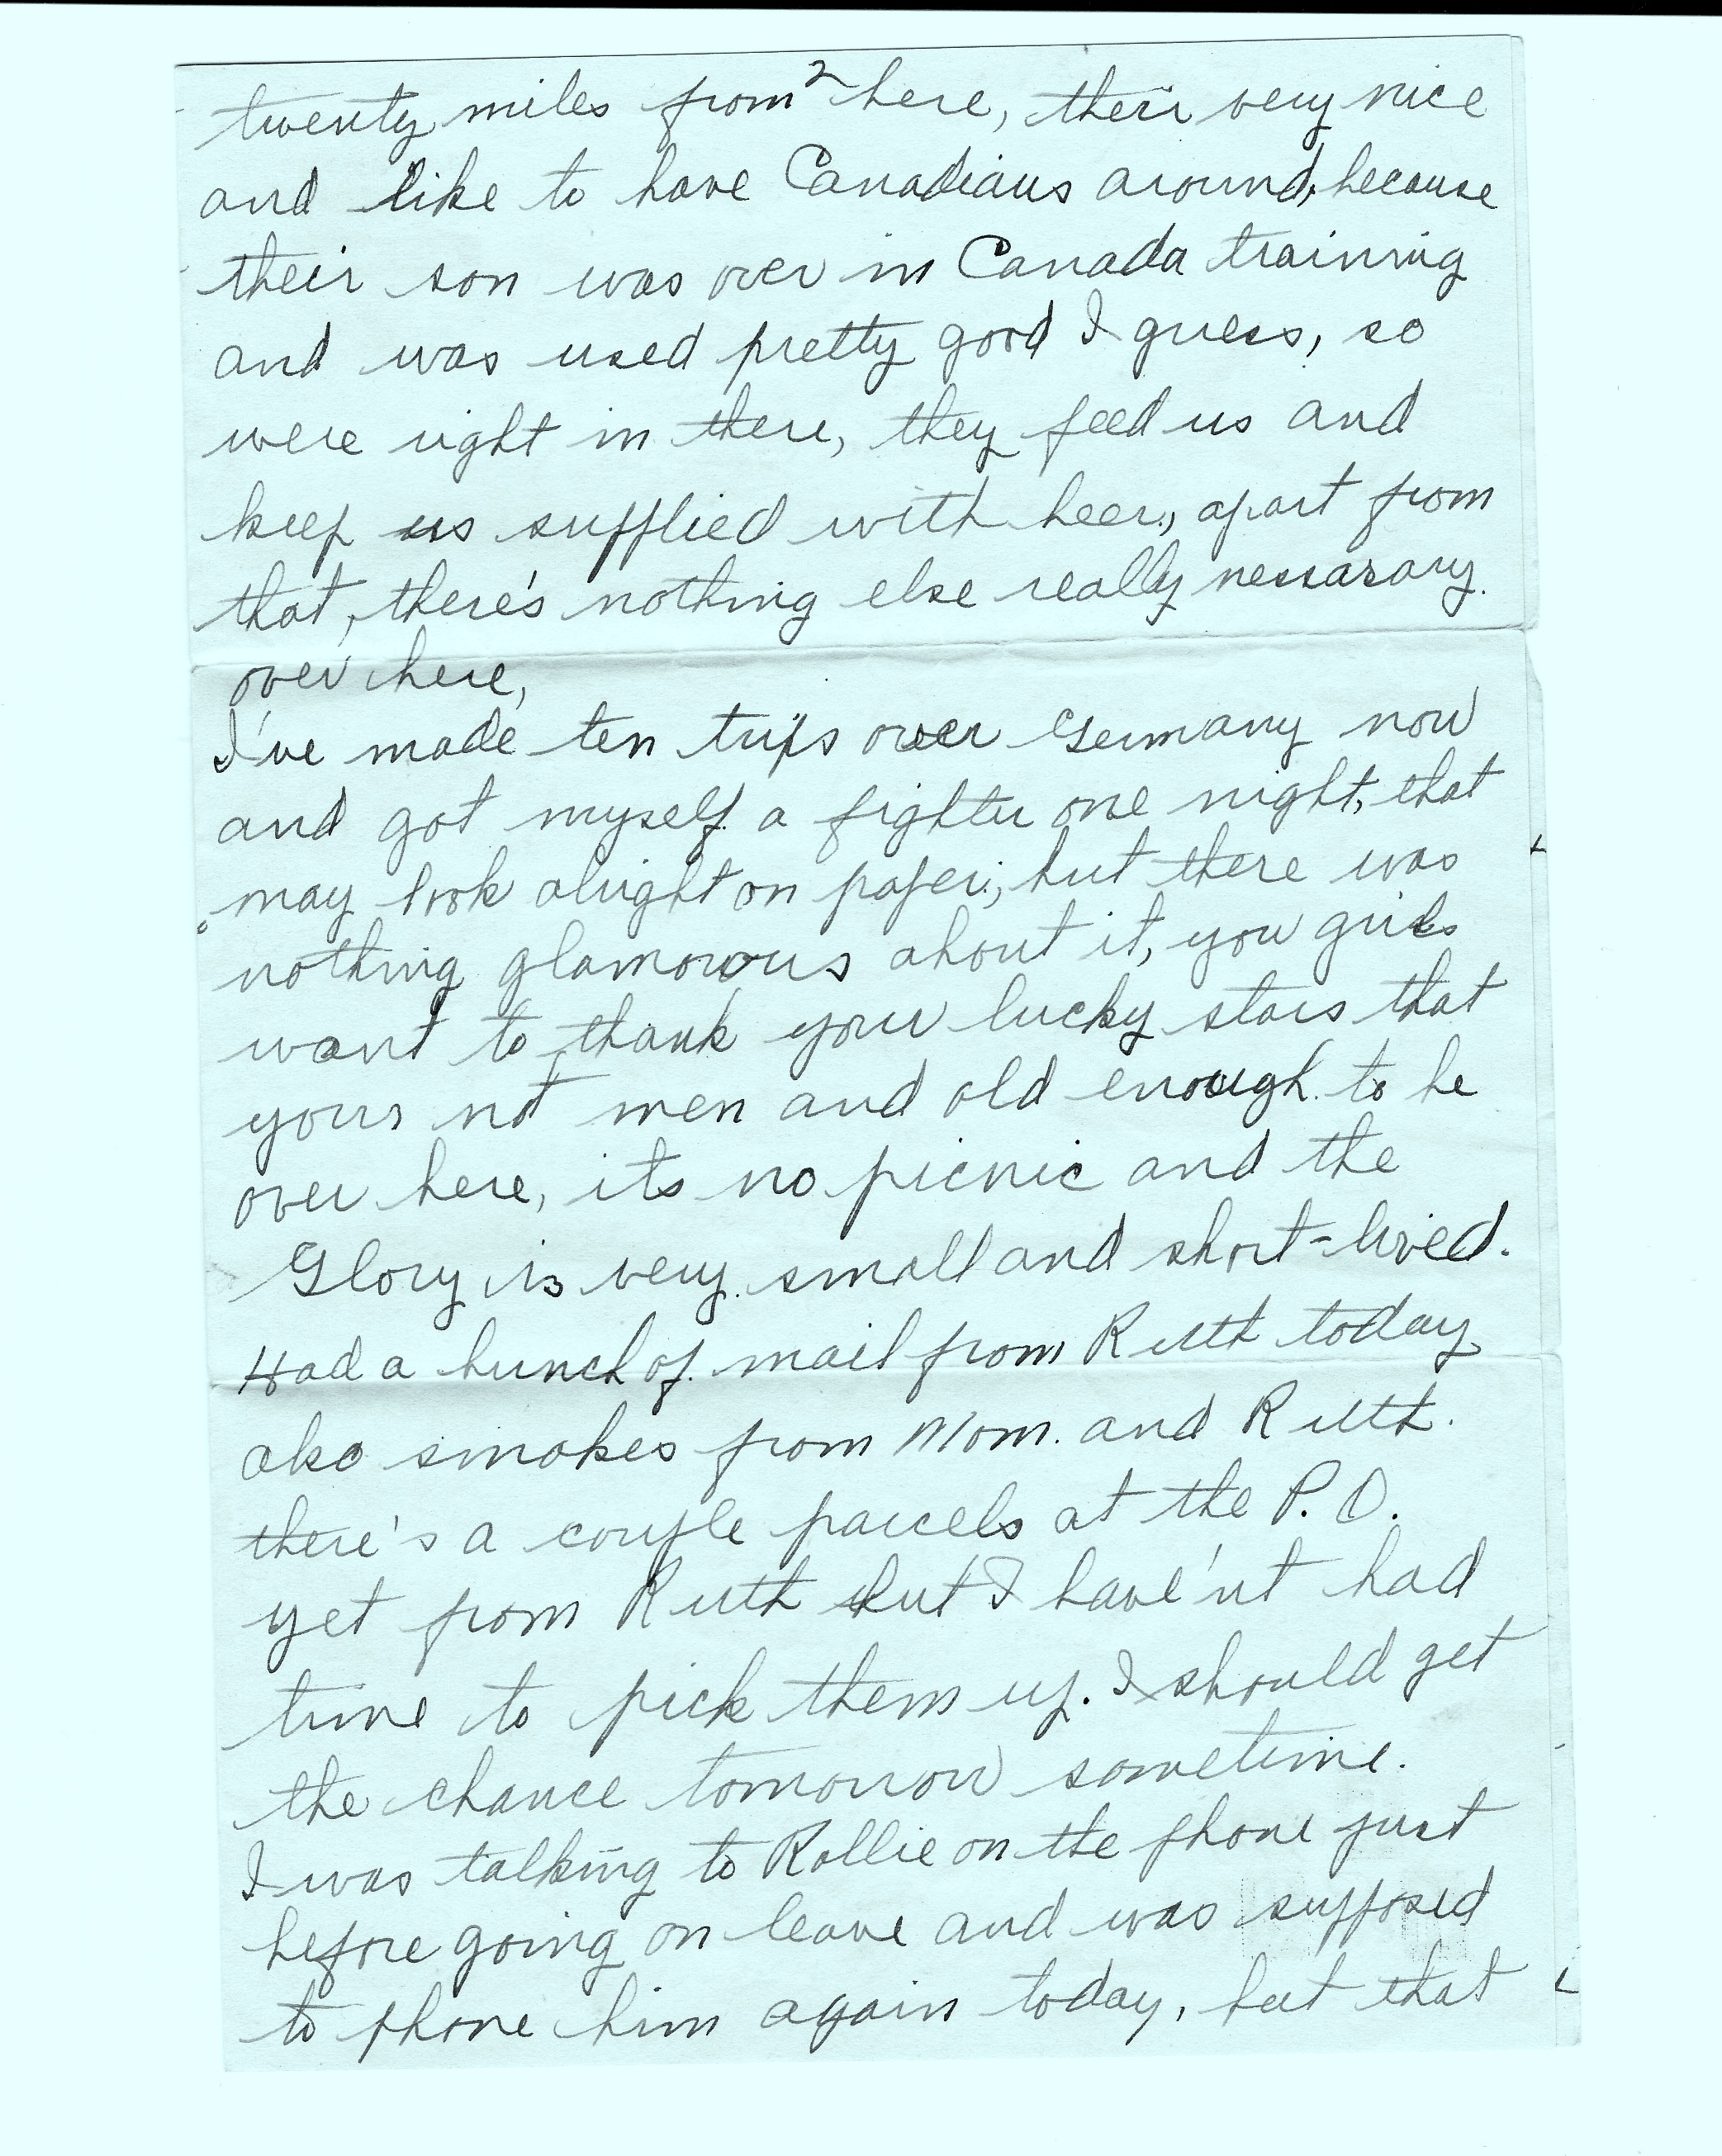 2
twenty miles from here, their very nice
and like to have Canadians around, because
their son was over in Canada training
and was used pretty good I guess, so
were right in there, they feed us and
keep us supplied with beer, apart from
that, there's nothing else really nessarary.
over here,
I've made ten trips over Germany now
and got myself a fighter one night, that
may look alright on paper, but there was
nothing glamorous about it, you girls
want to thank your lucky stars that
your not men and old enough to be
over here, its no picnic and the
Glory is very small and short-lived.
Had a bunch of mail from Ruth today
also smokes from Mom. and Ruth.
there's a couple parcels at the P.O.
yet from Ruth but I have'nt had
time to pick them up. I should get
the chance tomorrow sometime.
I was talking to Rollie on the phone just
before going on leave and was supposed
to phone him again today, but that